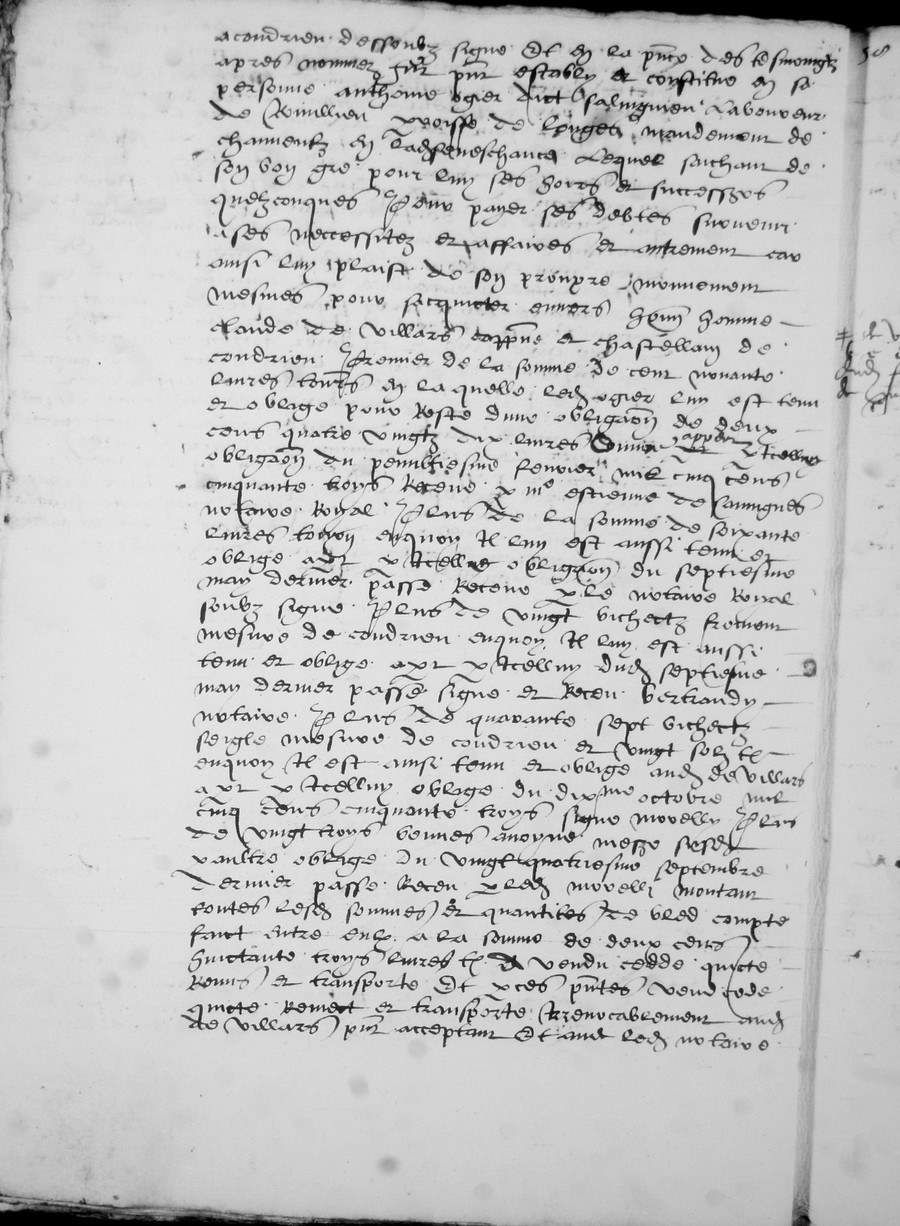 acondrien dessoubz signe Et en la pnce des tesmoingz
apres nommez fut pnt estably et constitue en sa
personne anthoine ogier dict Salinguieu Laboureur
de Rouillieu parroisse de Longes mandement de
chamentz en ladseneschaucee Lequel saichant de
son bon gre pour luy ses hoirs et successrs
quelzconques Pour payer ses debtes survenir
a ses neccessitez et affaires et autrement car
ainsi luy plaist de son prourpre mouvement
mesmes pour sacquicter envers hom homme
claude de villars cappne et chastellain de
condrien Premier de la somme de cent nonante
livres tourn en laquelle led ogier luy est tenu
et oblige pour Reste dune obligaon de deux
cens quatre vingtz dix livres appert p Icelluy
obligaon du penultiesme fevrier mil cinq cens
cinquante troys Receue p me estienne de Sauvignes
notaire Royal Plus de la somme de soixante
livres enquoy Il luy est aussi tenu et
oblige apt p Icelle obligaon du septiesme
may dernier passe Receue p le notaire Royal
soubz signe Plus de vingt bichectz froment
mesure de condrieu enquoy Il luy est aussi
tenu et oblige apt p Icelluy dud septiesme
may dernier passe signe et Receu bertrandy
notaire Plus de quarante sept bichectz
seigle mesure de condrieu et vingt solz tz
enquoy Il est aussi tenu et oblige aud de Villars
apt p Icelluy oblige du dixme octobre mil
cinq cens cinquante troys signe morelly Plus
de vingt troys bennes avoyne
p aultre oblige du vingt quatriesme septembre
dernier passe Receu p led morelli montant
toutes lesd sommes et quantites de bled compte
faict entre eulx a la somme de deux cens
huictante troys livres tz A vendu cedde quicte
Remis et transporte Et p ces pntes vend cede
quicte Remect et transporte Irrevocablement aud
de Villars pnt acceptant Et aud led notaire